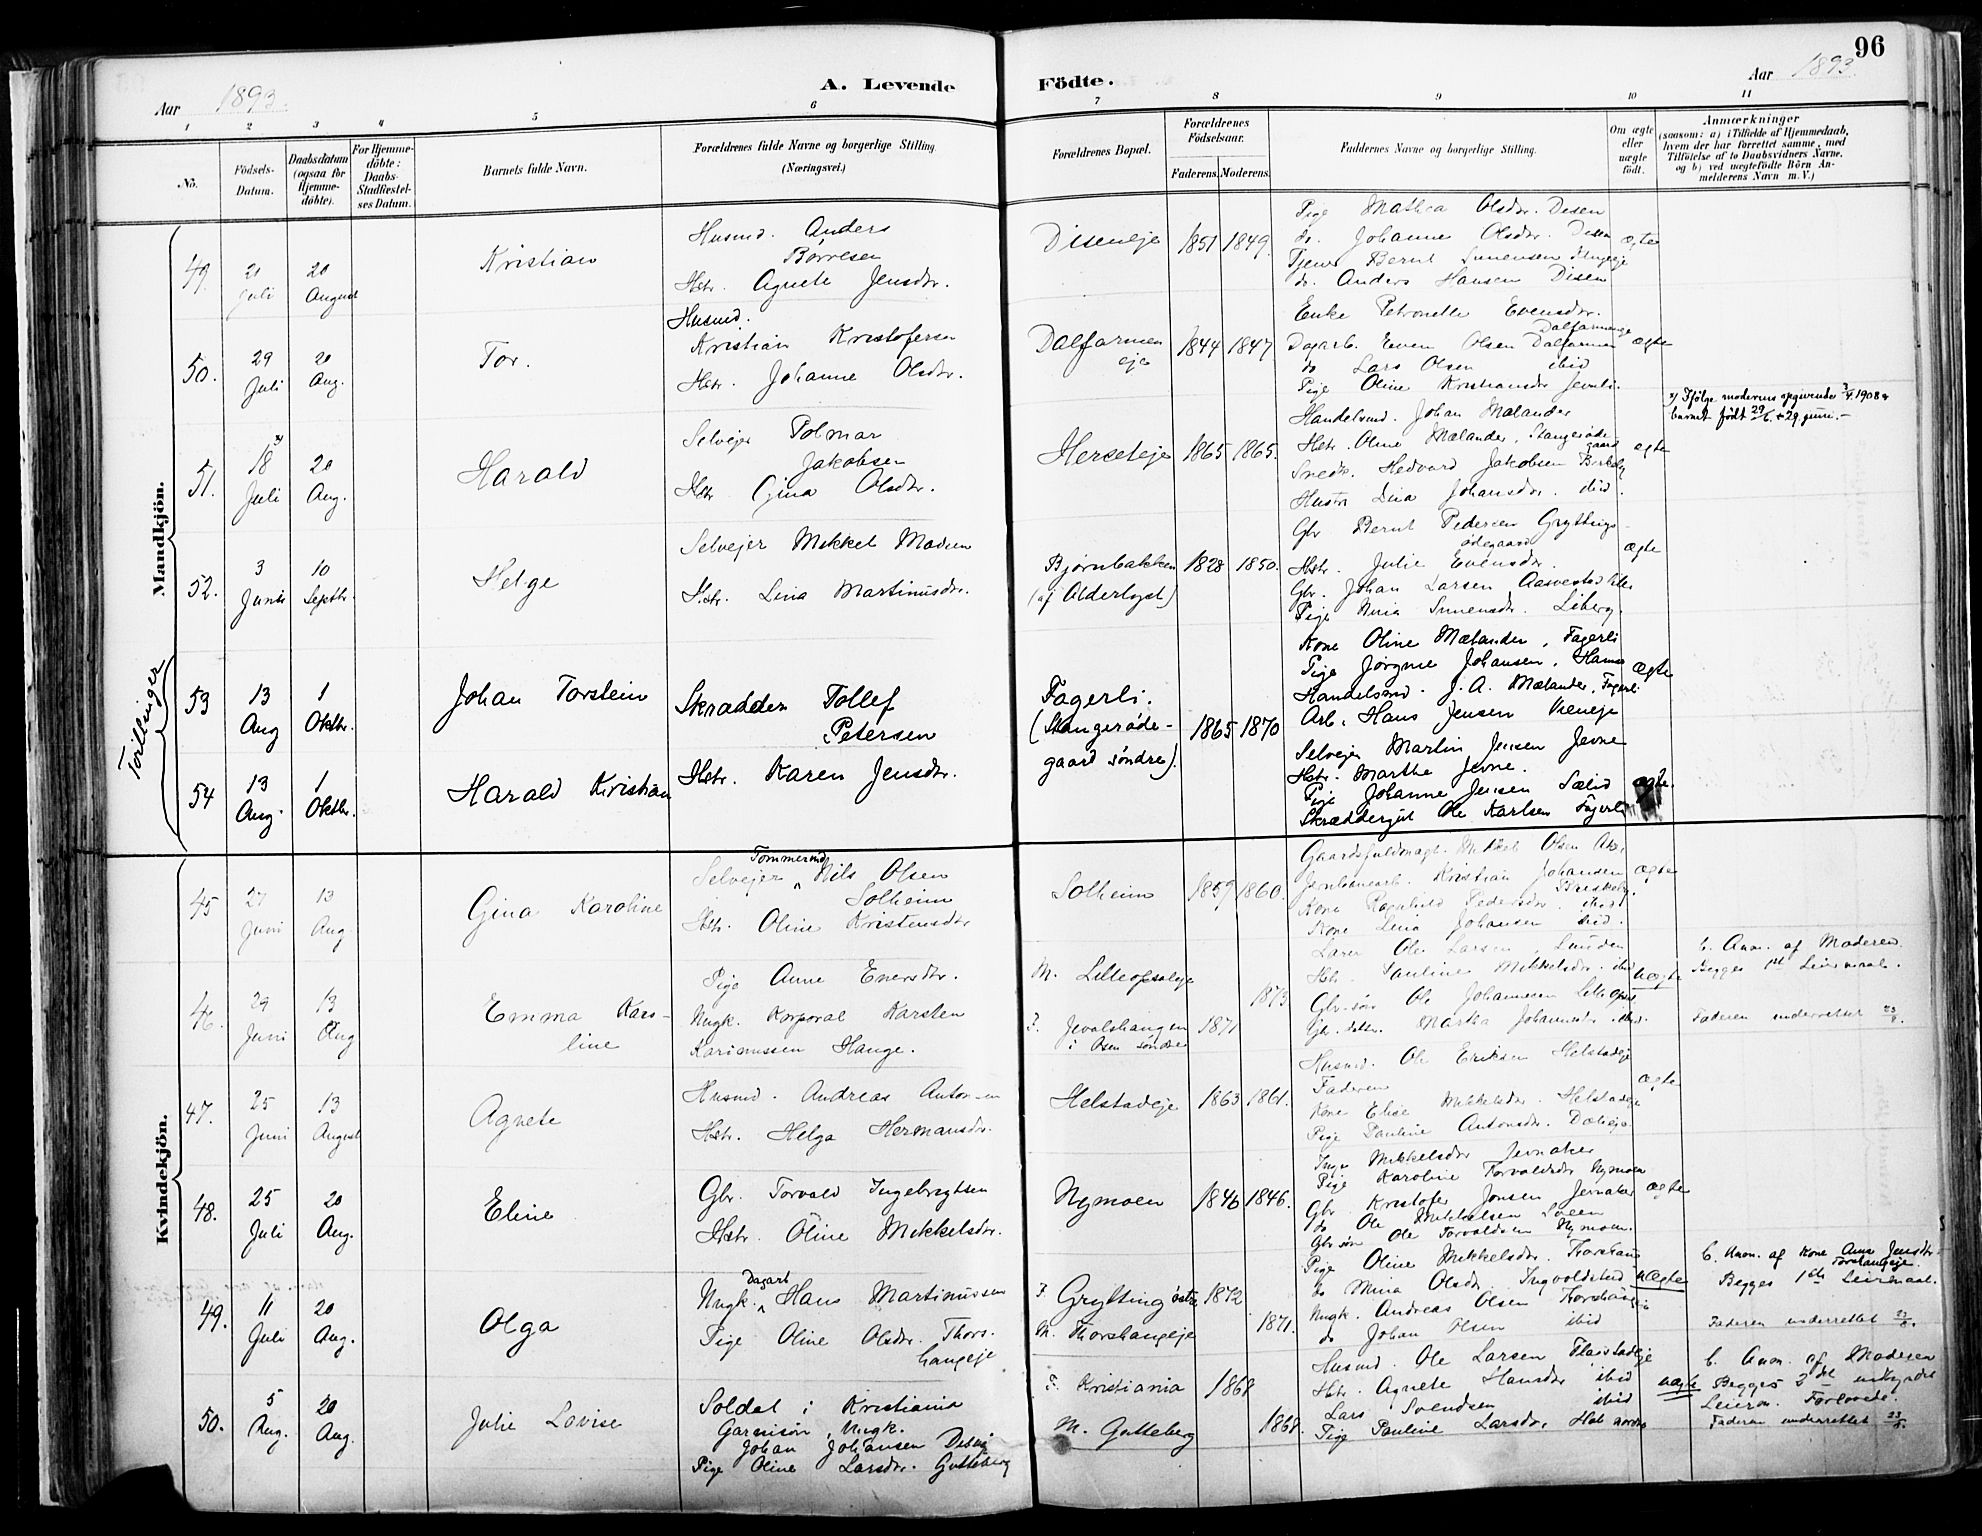 96
Aar 1893.
A. Levende
Födte.
Aar 1893.
1 2 3 4 5 6 7 8 9 10 11
No.
Födsels-
Datum.
Daabsdatum
(ogsaa for
Hjemme-
döbte).
For Hjemme-
döbte:
Daabs-
Stadfæstel-
ses Datum.
Barnets fulde Navn.
Forældrenes fulde Navne og borgerlige Stilling
(Næringsvei.)
Forældrenes Bopæl.
Forældrenes
Födselsaar.
Faderens. Moderens.
Faddernes Navne og borgerlige Stilling.
Om ægte
eller
uægte
födt.
Anmærkninger
(saasom: a) i Tilfælde af Hjemmedaab,
hvem der har forrettet samme, med
Tilföielse af to Daabsvidners Navne.
og b) ved uægtefödte Börn An-
melderens Navn m. V.)
Mandkjön.
49.
21
Juli
20
August
Kristian
Husmd. Anders
Børresen
Hstr. Agnete Jensdtr.
Diseneje
1851 1849.
Pige Mathea Olsdtr. Disen
do. Johanne Olsdtr. Disen
Tjener Bernt Simensen
do. Anders Hansen Disen
ægte
50.
29
Juli
20
Aug.
Tor.
Husmd.
Kristian Kristofersen
Hstr. Johanne Olsdtr.
Dalfarmen
eje
1844 1847
Enke Petronelle Evensdtr.
Dalfarmeneje
Dagarb. Even Olsen Dalfarmen
do Lars Olsen ibid
Pige Oline Kristiansdtr Jevnli.
ægte
51.
18
Juli
20
Aug.
Harald
Selvejer Polmar
Jakobsen
Hstr Gina Olsdtr.
Herseteje
1865 1865.
Handelsmd. Johan Mælander
Hstr. Oline Mælander, Stangerøde
gaard
Snedk. Hedvard Jakobsen Birkeby
Hustru Lina Johansdtr. ibid.
ægte
Ifølge moderens opgivende 1908 er
barnet født 29/6 = 29 juni.
52.
3
Juni
10
Septbr.
Helge
Selvejer Mikkel Madsen
Hstr. Lina Martinusdtr.
Bjørnbakken
(af Alderlyst)
1828 1850.
Gbr Bernt Pedersen Gryttings-
ødegaard
Hstr. Julie Evensdtr.
Gbr. Johan Larsen
Pige Nina Simensdtr. Liberg.
ægte
Tvillinger
53
13
Aug
1
Oktbr.
Johan Torstein
Skrædder Tollef
Petersen
Hstr. Karen Jensdtr.
Fagerli.
(Stangerøde-
gaard søndre).
1865 1870
Kone Oline Mælander, Fagerli
Pige Jørgine Johansen,
Handelsmd. J. A. Mælander, Fagerli
Arb. Hans Jensen
ægte
54
13
Aug.
1
Oktbr.
Harald Kristian
Selvejer Martin Jensen Jevne
Hstr. Marthe Jevne.
Pige Johanne Jensen Sælid
Skræddergut Ole Karlsen Fagerli
ægte.
Kvindekjön.
45
27
Juni
13
Aug
Gina Karoline
Tømmermd.
Selvejer Nils Olsen
Solheim
Hstr. Oline Kristensdtr
Solheim
1859 1860.
Gaardsfuldmægt. Mikkel Olsen
Jernbanearb. Kristian Johansen
Briskeby.
Kone Ragnhild Pedersdtr. ibid
Kone Lina Johansen ibid.
ægte
46.
29
Juni
13
Aug
Emma Karo-
line
Pige Anne Enersdtr.
Ungk. Korporal Karsten
Karinussen Hauge.
M. Lilleopsaleje
F. Jevolshaugen
i Osen søndre
1871
1873
Lærer Ole Larsen,
Hstr. Pauline Mikkelsdtr. ibid
Gbr.søn Ole Johannesen Lilleopsal
Gbr.datter. Martha Johannesdtr. ibid.
uægte
b. Anm. af Moderen.
Begges 1ste Leiermaal.
Faderen underrettet 23/8.
47.
25
Juni
13
August
Agnete
Husmd. Andreas Antonsen
Hstr. Helga Hermansdtr.
Helstadeje
1863 1861.
Husmd. Ole Eriksen Helstadeje
Faderen
Kone Elise Mikkelsdtr. Helstadeje
Pige Pauline Antonsdtr.
ægte
48.
25
Juli
20
Aug.
Eline
Gbr. Torvald Ingebrigtsen
Hstr. Oline Mikkelsdtr.
Nymoen
1846 1846.
Inga Mikkelsdtr Jevnaker
Pige Karoline Torvaldsdtr Nymoen
Gbr Kristofer Jonsen Jevnaker
do Ole Mikkelsen Sveen
Gbr søn Ole Torvaldsen Nymoen.
ægte
49.
11
Juli
20
Aug.
Olga
Dagarb
Ungk. Hans Martinussen
Pige Oline Olsdtr. Thors-
haugeje
F Grytting østre
M. Thorshaugeje
1872
1871.
Pige Oline Mikkelsdtr. Thorshaug
do Mina Olsdtr Ingvoldstad
Ungk. Andreas Olsen Thorshaugeje
do Johan Olsen ibid
uægte
b. Anm. af Kone Anne Jensdtr.
Torshaugeje.
Begges 1ste Leiermaal.
Faderen underrettet 23/8.
50.
5
Aug.
20
Aug.
Julie Lovise
Soldat i Kristiania
Garnison, Ungk.
Johan Johansen
Pige Oline Larsdtr. Gutteberg
F. Kristiania
M. Gutteberg
1868
1868.
Husmd. Ole Larsen
Hstr. Agnete Hansdtr ibid
Lars Svendsen ibid
Pige Pauline Larsdtr.
uægte
b. Anm. af Moderen
Begges 2det
Leierm. Forlovede.
Faderen underrettet 23/8.